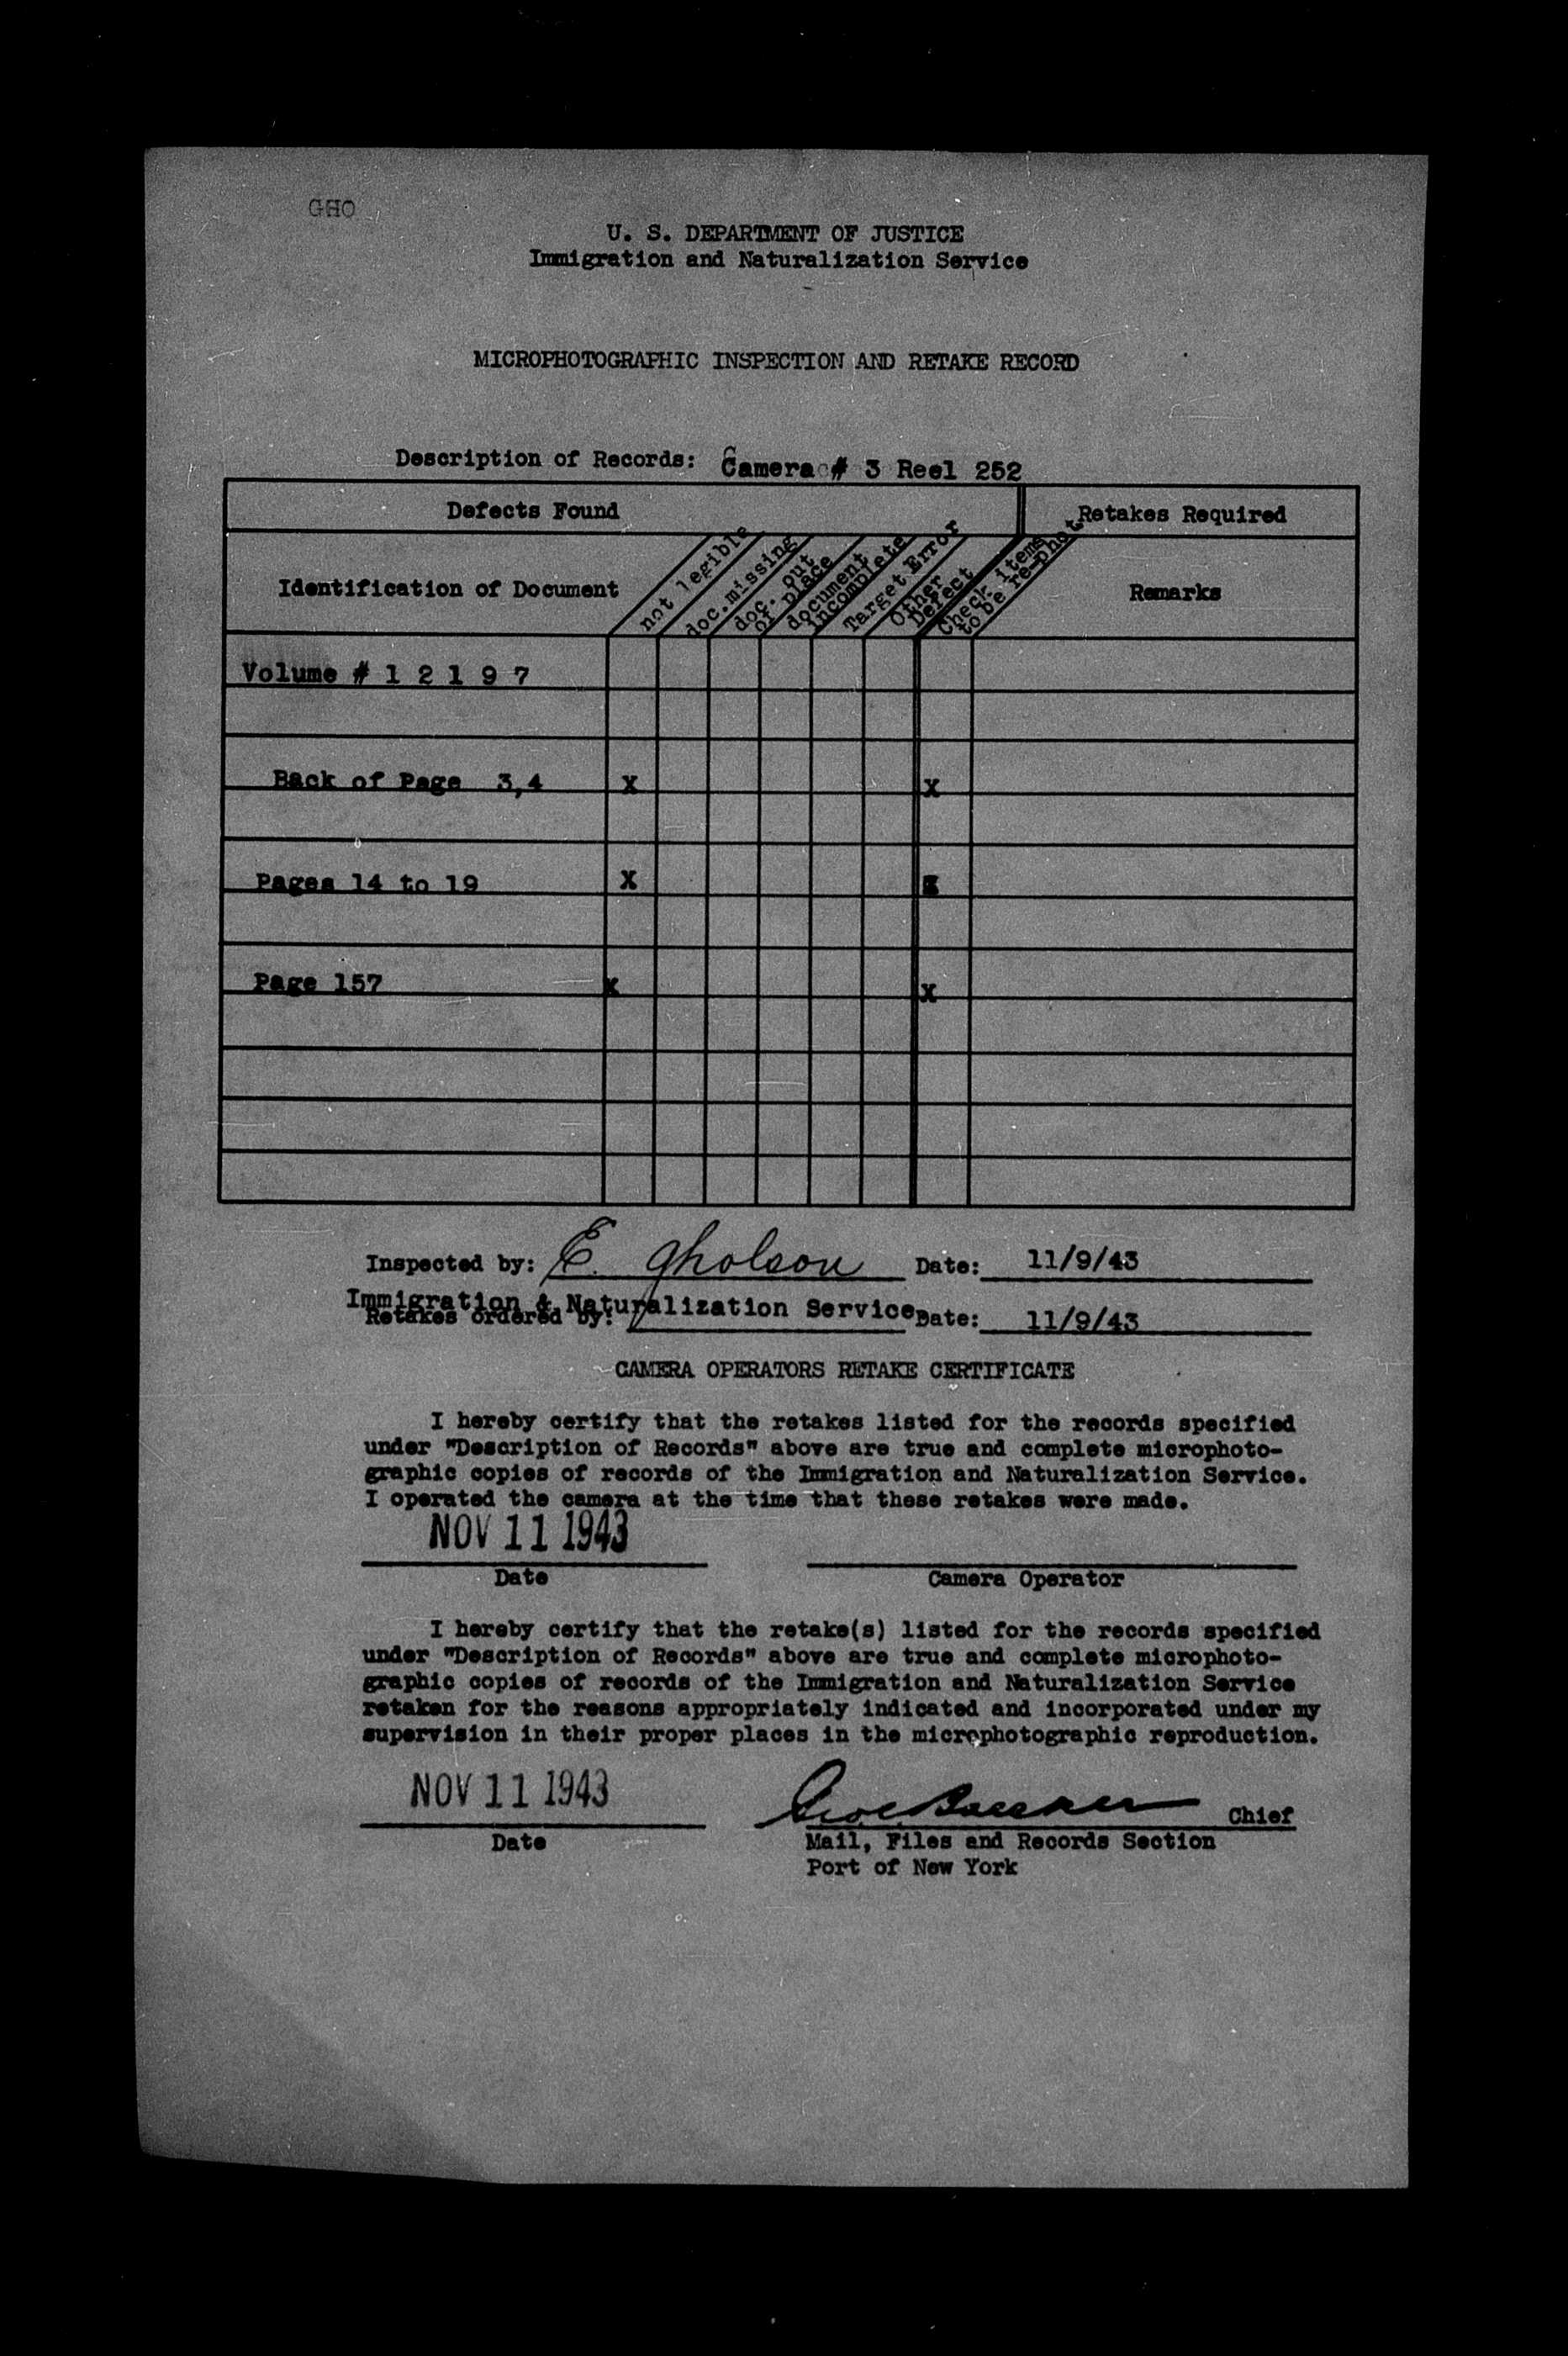 GHO
U. S. DEPARTMENT OF JUSTICE
Immigration and Naturalization Service
MICROPHOTOGRAPHIC INSPECTION AND RETAKE RECORD
Description of Records: Camera # 3 Reel 252
Defects Found
Retakes Required
Identification of Document
not legible
doc.missing
doc. out
of place
document
incomplete
Target Error
Other
Defect
Check items
to be re-phot
Remarks
Volume # 1 2 1 9 7
Back of Page 3,4 X X
Pages 14 to 19 X X
Page 157 X X
Inspected by: E. Gholson Date: 11/9/43
Immigration & Naturalization Service
Retakes ordered by: Date: 11/9/43
CAMERA OPERATORS RETAKE CERTIFICATE
I hereby certify that the retakes listed for the records specified
under "Description of Records" above are true and complete microphoto-
graphic copies of records of the Immigration and Naturalization Service.
I operated the camera at the time that these retakes were made.
NOV 11 1943
Date Camera Operator
I hereby certify that the retake(s) listed for the records specified
under "Description of Records" above are true and complete microphoto-
graphic copies of records of the Immigration and Naturalization Service
retaken for the reasons appropriately indicated and incorporated under my
supervision in their proper places in the microphotographic reproduction.
NOV 11 1943 Chief
Date Mail, Files and Records Section
Port of New York